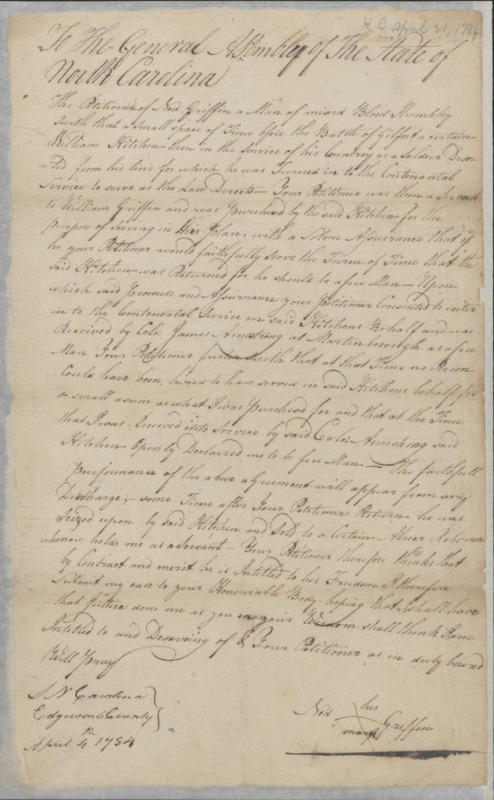 H.C. April 21, 1784
To The General Assembly of The State of
North Carolina
The Petition of Ned Griffin a Man of mixed Blood Humbly
Saith that a small space of Time before the Battle of Gilford a certain
William Kitchen then in the Service of his Countrey as a Soldier Deser-
ted from his line for which he was Turned in to the Continental
Service to serve as the Law Directs— Your Petitioner was then a Servant
to William Griffin and was Purchised by the said Kitchen for the
purpose of Serving in His Place, with a Solom Assurance that if
he your Petitioner would faithfully serve the Term of Time that the
said Kitchen was Returned for he should be a free Man— Upon
which said Promise and Assurance your Petitioner Consented to enter
in to the Continental Service in said Kitchens Behalf and was
Received by Colo. James Armstrong at Martinborough as a free
Man Your Petitioner further Saith that at that Time no Person
Could have been hired to have served in said Kitchens behalf for
so small a sum as what I was Purchesed for and that at the Time
that I was Received into Service by said Colo. Armstrong said
Kitchen Openly Declaired me to be free Man— The faithfull
purformance of the above agreement will appear from my
Discharge;— some Time after Your Petitioners Return he was
Seized upon by said Kitchen and Sold to a Certain Abner Roberson
who now holds me as a Servant— Your Petitioner therefore thinks that
by Contract and merit he is Intitled to his Freedom I therefore
Submit my case to your Honourable Body hoping that I shall have
that Justice done me as you in your Wisdom shall think I am
Intitled to and Deserving of & Your Petitioner as in duty bound
Will Pray
N Carolina
Edgecomb County
April 4th 1784
his
Ned Griffin
mark